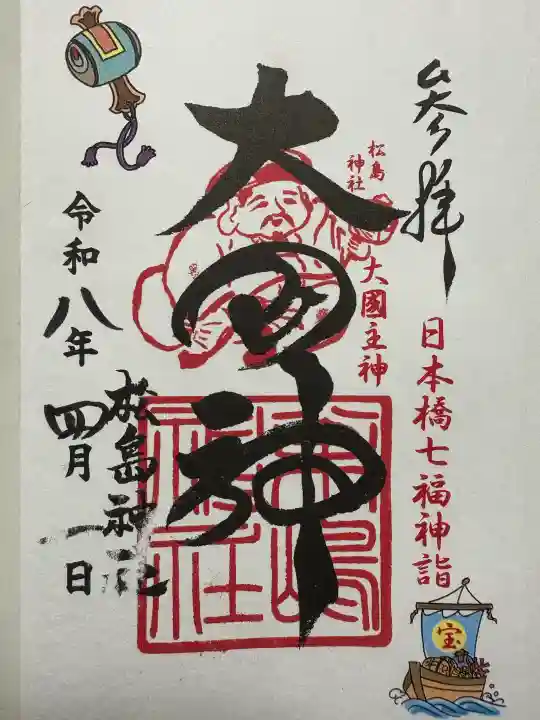 参拝
日本橋七福神詣
松島
神社
大國主神
大国神
松島神社
令和八年
四月一日
松嶋
神社
宝